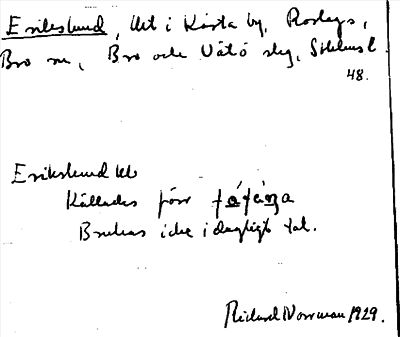 Erikslund, lht i Kårsta by, Roslags,
Bro sn, Bro och Vätö slg, Sthlms l.
48.
Erikslund lht
Kallades förr
Brukas icke i dagligt tal.
Richard Norrman 1929.